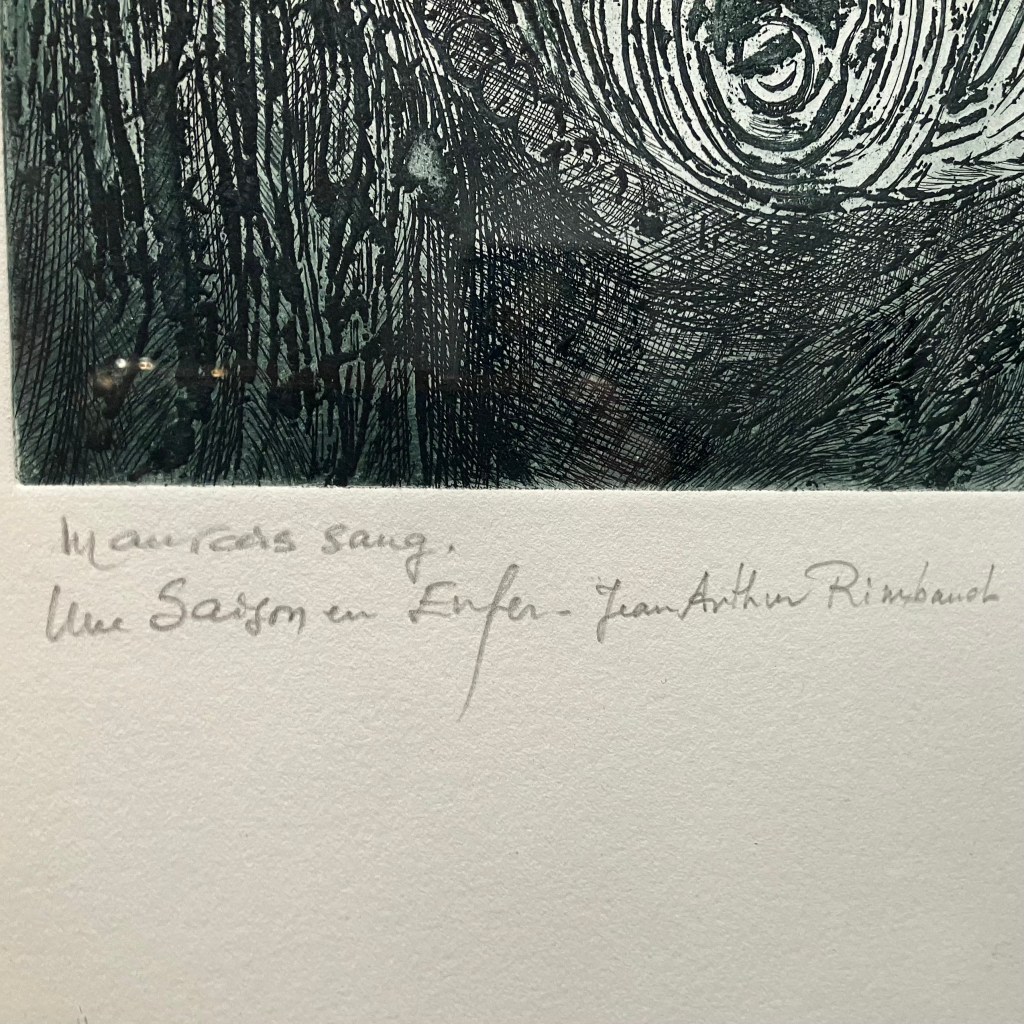 Mauvais sang.
Une Saison en Enfer - Jean Arthur Rimbaud